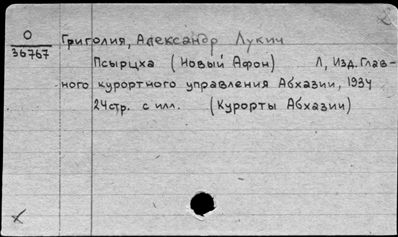 О
36767
Григолия, Александр Лукич
Псырцха (Новый Афон) Л, Изд. Глав-
ного курортного управления Абхазии, 1934
24 стр. с илл. (Курорты Абхазии)